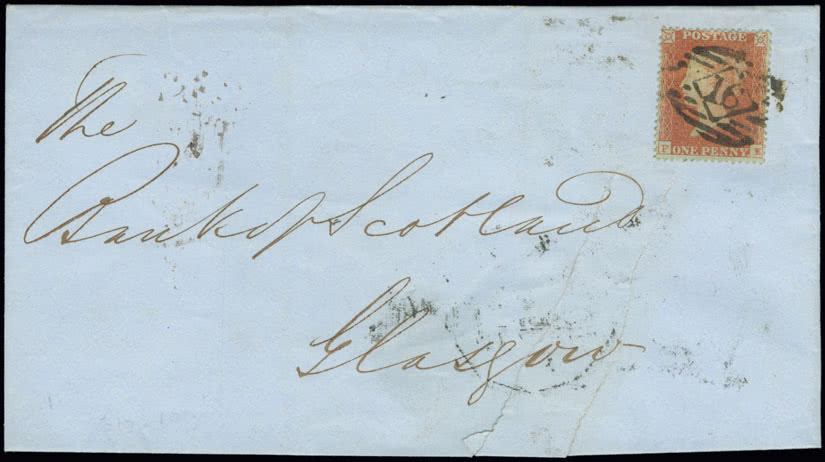 POSTAGE
16
P E
ONE PENNY
The
Bank of Scotland
Glasgow